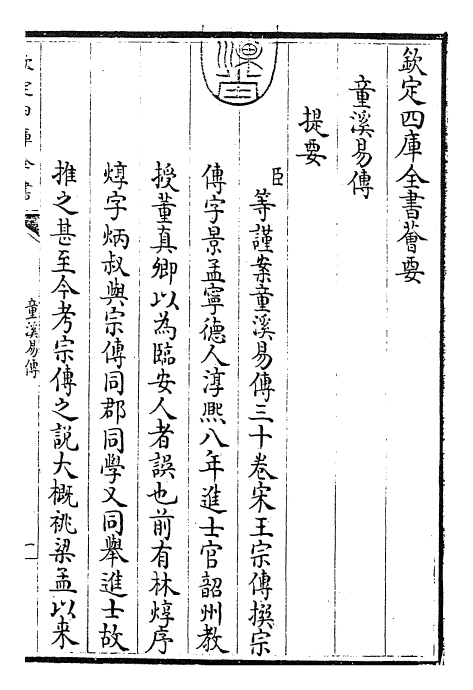 欽定四庫全書薈要
童溪易傳
提要
臣等謹案童溪易傳三十卷宋王宗傳撰宗
傳字景孟寧德人淳熙八年進士官韶州教
授董真卿以為臨安人者誤也前有林焞序
焞字炳叔與宗傳同郡同學又同舉進士故
推之甚至今考宗傳之說大概祧梁孟以来
欽定四庫全書
童溪易傳
一